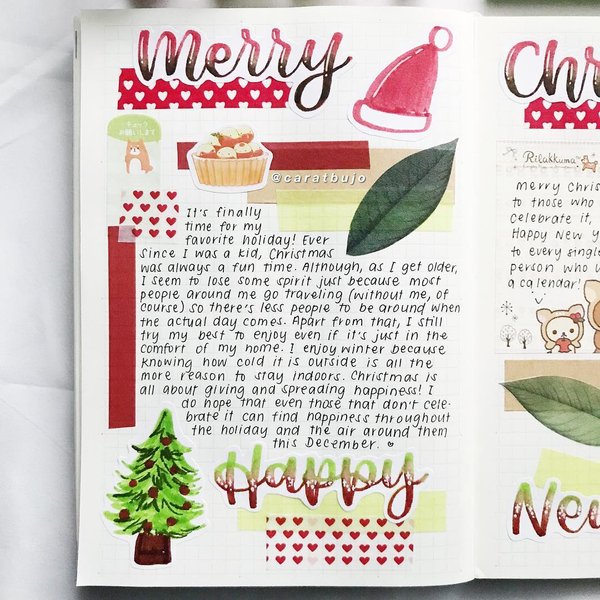 Merry
チェック
お願いします
@caratbujo
It's finally
time for my
favorite holiday! Ever
since I was a kid, Christmas
was always a fun time. Although, as I get older,
I seem to lose some spirit just because most
people around me go traveling (without me, of
course) so there's less people to be around when
the actual day comes. Apart from that, I still
try my best to enjoy even if it's just in the
comfort of my home. I enjoy winter because
knowing how cold it is outside is all the
more reason to stay indoors. Christmas is
all about giving and spreading happiness! I
do hope that even those that don't cele-
brate it can find happiness throughout
the holiday and the air around them
this December.
Happy
Chr
Rilakkuma
merry Chris
to those who
celebrate it,
Happy New Y
to every single
person who u
a calendar!
New